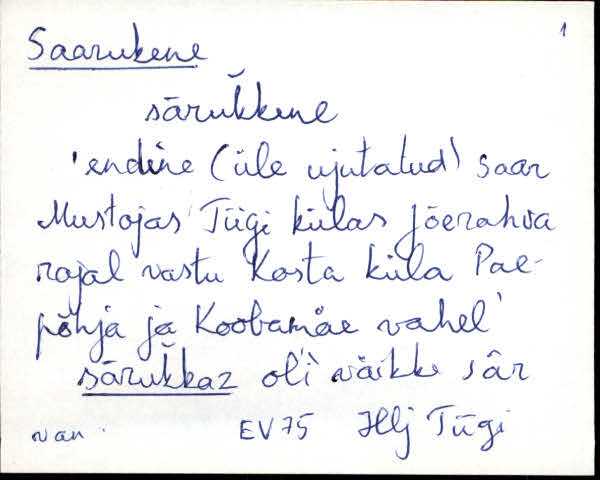 1
Saarukene
sārŭkkene
'endine (üle ujutatud) saar
Mustojas Tiigi külas jõerahva
rajal vastu Kosta küla Pae-
põhja ja Koobamäe vahel'
sārŭkkaz oĺi väikke sâr
van. EV 75 Hlj Tiigi